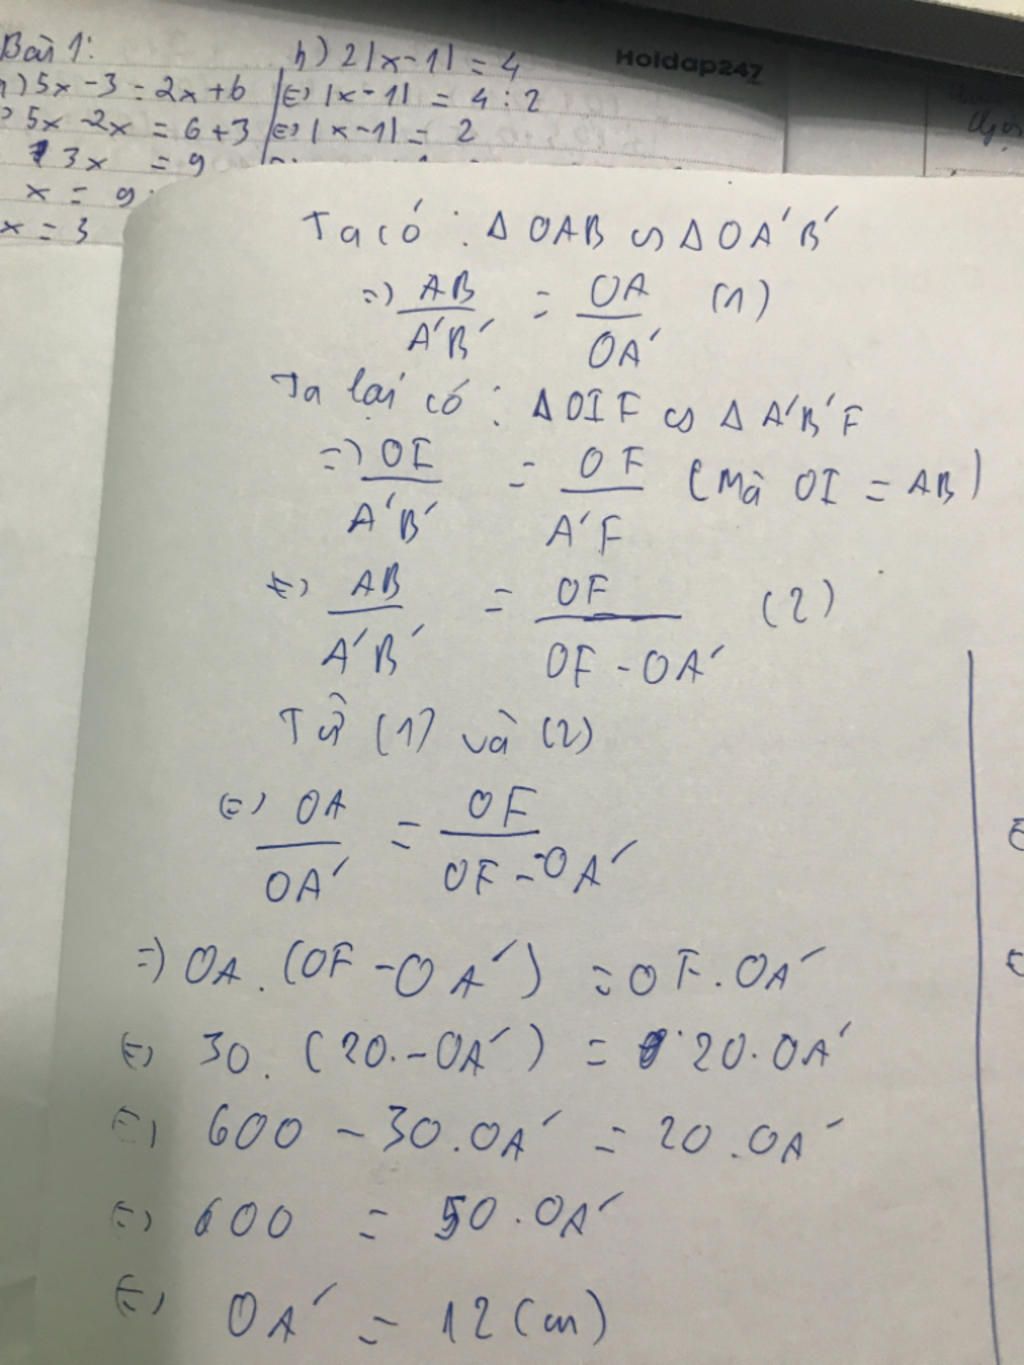 Bài 1:
5x - 3 = 2x + 6
5x - 2x = 6 + 3
3x = 9
x = 9
x = 3
h) 2|x - 1| = 4
(=) |x - 1| = 4 : 2
(=) |x - 1| = 2
Holdap247
Ta có : Δ OAB ∽ Δ OA'B'
=) AB/A'B' = OA/OA' (1)
Ta lại có : Δ OIF ∽ Δ A'B'F
=) OI/A'B' = OF/A'F (Mà OI = AB)
(=) AB/A'B' = OF/OF - OA' (2)
Từ (1) và (2)
(=) OA/OA' = OF/OF - OA'
=) OA . (OF - OA') = OF . OA'
(=) 30 . (20 - OA') = 20 . OA'
(=) 600 - 30 . OA' = 20 . OA'
(=) 600 = 50 . OA'
(=) OA' = 12 (cm)